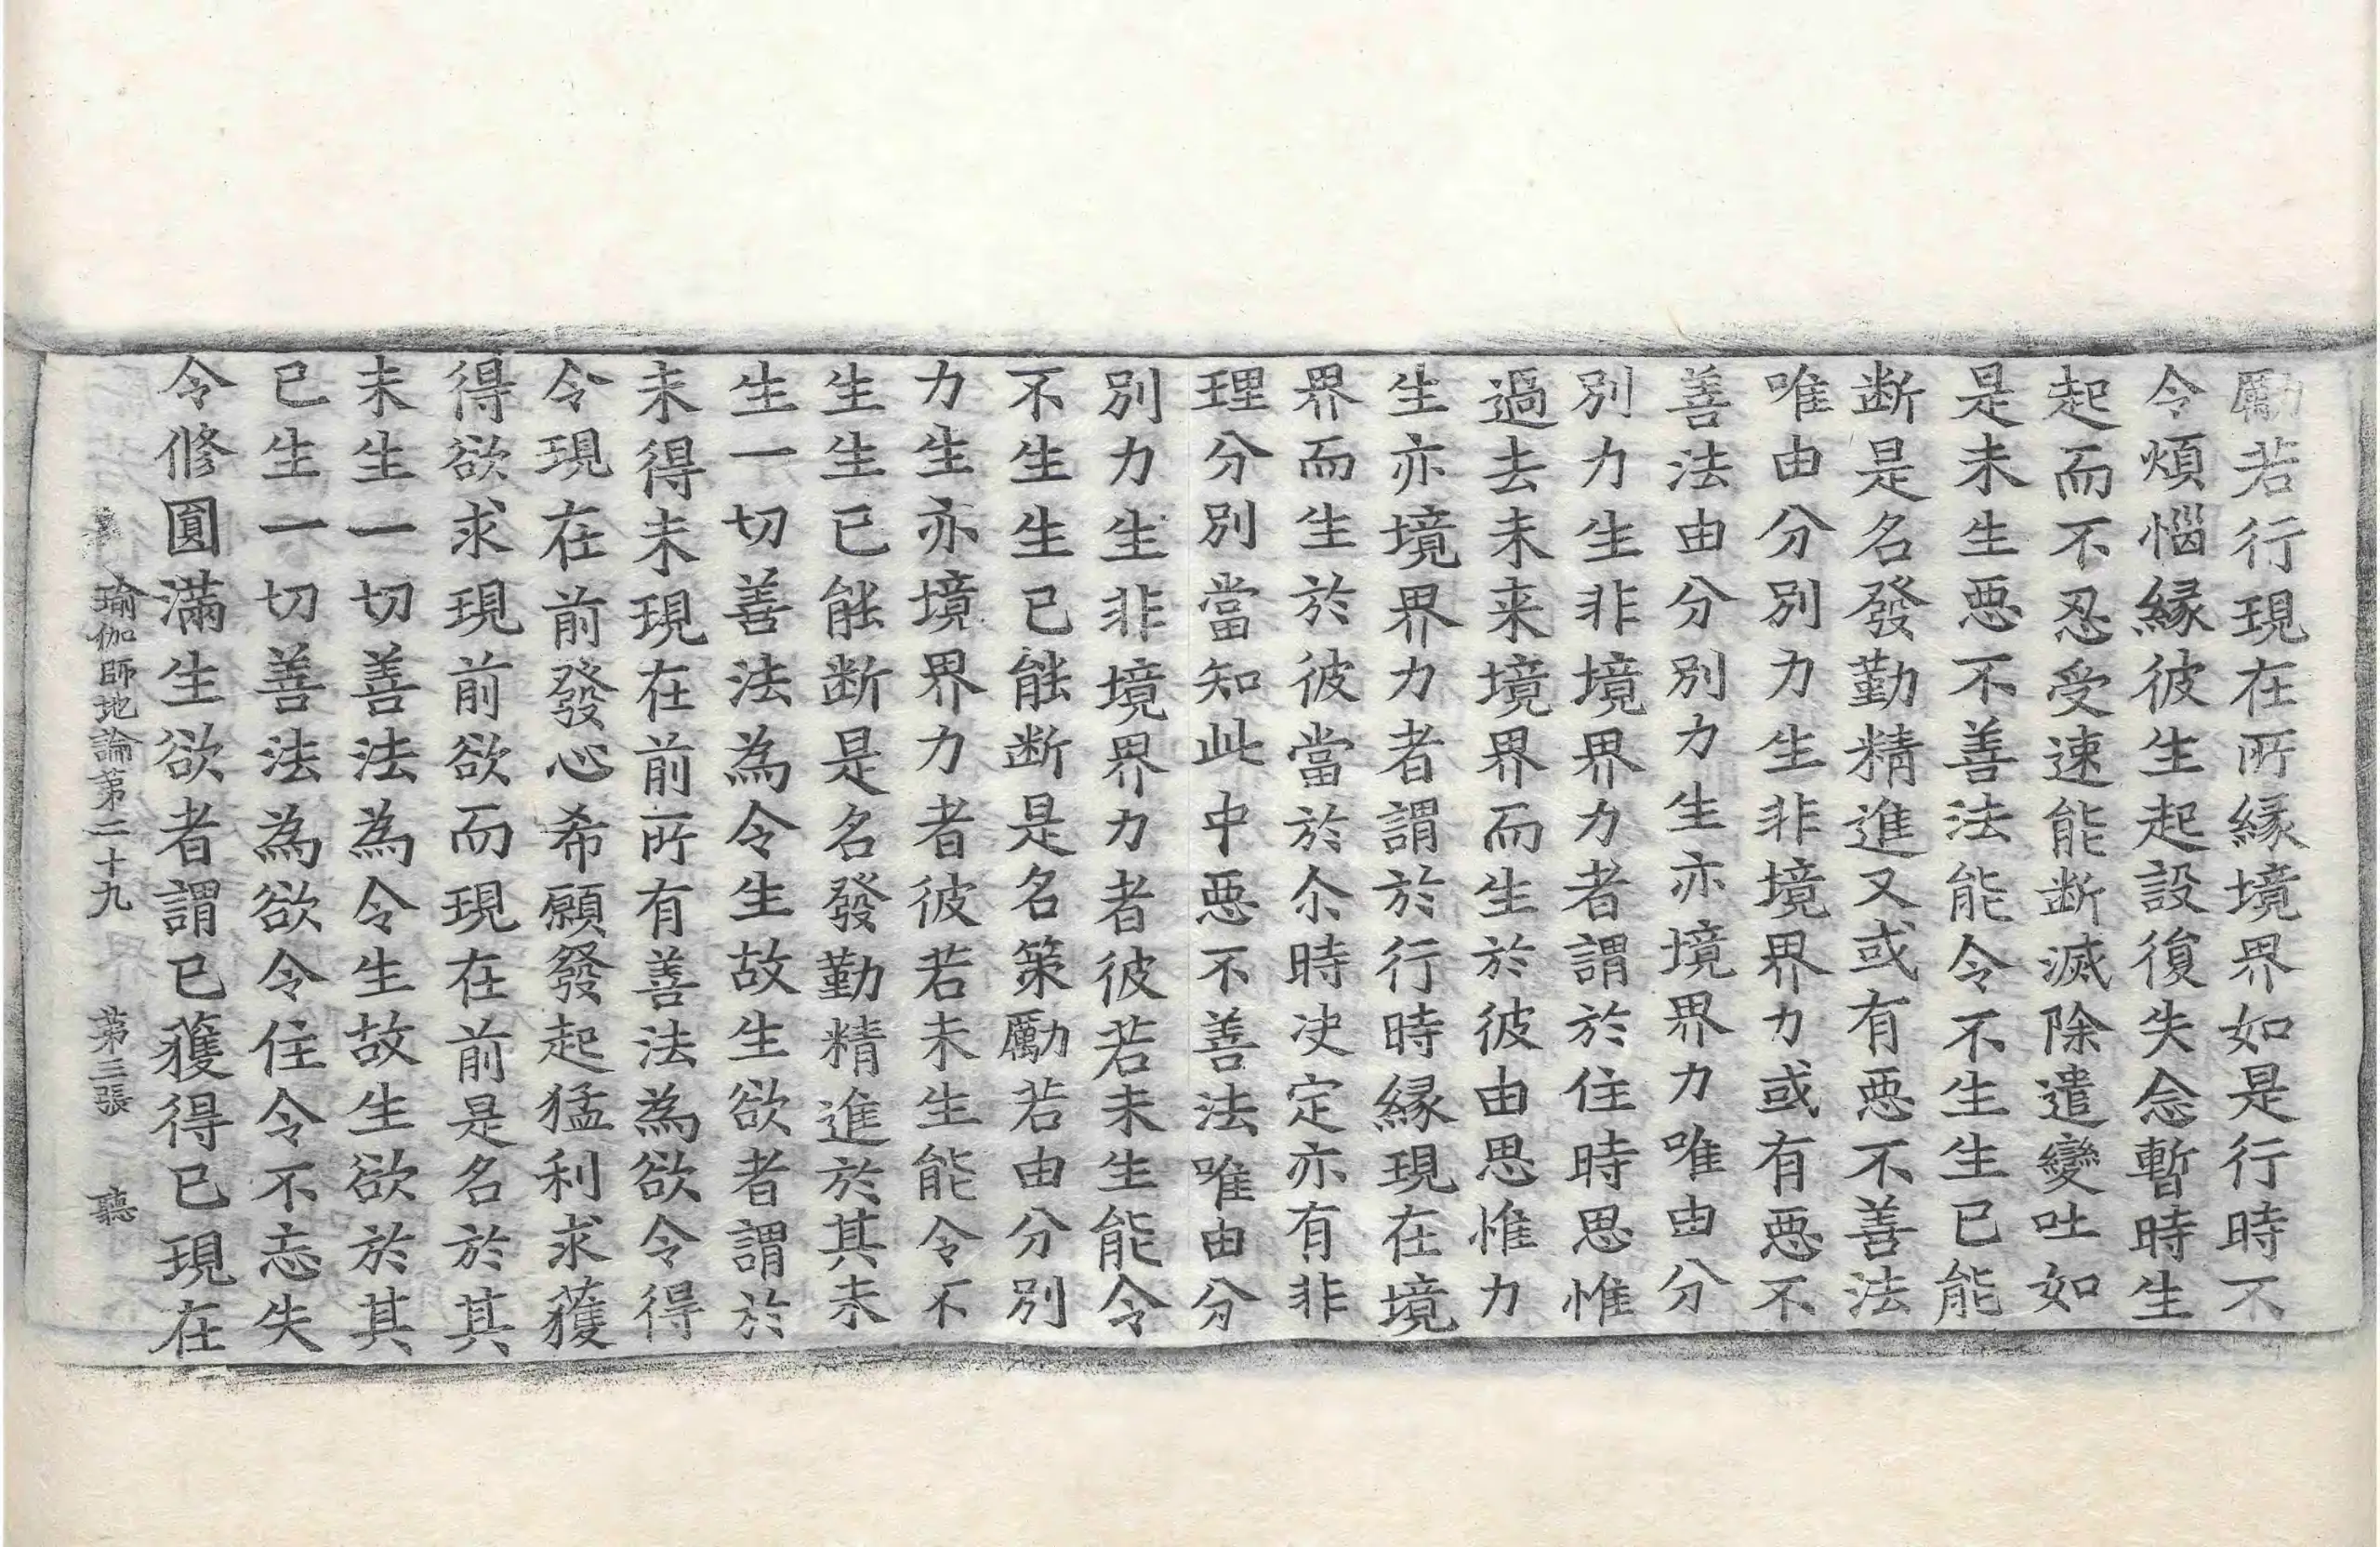 勵若行現在所縁境界如是行時不
令煩惱縁彼生起設復失念暫時生
起而不忍受速能断滅除遣變吐如
是未生惡不善法能令不生生已能
断是名發勤精進又或有惡不善法
唯由分別力生非境界力或有惡不
善法由分別力生亦境界力唯由分
別力生非境界力者謂於住時思惟
過去未来境界而生於彼由思惟力
生亦境界力者謂於行時縁現在境
界而生於彼當於尒時决定亦有非
理分別當知此中惡不善法唯由分
別力生非境界力者彼若未生能令
不生生已能断是名策勵若由分別
力生亦境界力者彼若未生能令不
生生已能断是名發勤精進於其未
生一切善法為令生故生欲者謂於
未得未現在前所有善法為欲令得
令現在前發心希願發起猛利求獲
得欲求現前欲而現在前是名於其
未生一切善法為令生故生欲於其
已生一切善法為欲令住令不忘失
令修圓滿生欲者謂已獲得已現在
瑜伽師地論第二十九 第三張 聽